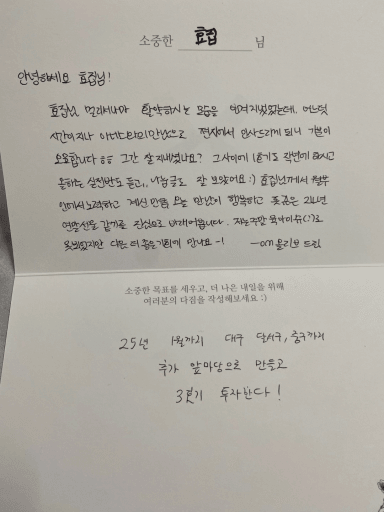 소중한 효접 님
안녕하세요 효접님!
효접님 멀리서나마 활약하시는 모습을 지켜봤었는데, 어느덧
시간이 지나 아너스 만남으로 편지에서 인사드리게 되니 기분이
오묘합니다 ㅎㅎ 그간 잘 지내셨나요? 그 사이에 1호기도 작년에 하시고
올해는 실전반도 듣고, 나눔글도 잘 보았어요 :) 효접님께서
안에서 노력하고 계신 만큼 오늘 만남이 행복하고 좋은 24년
연말선물 같기를 진심으로 바래어봅니다. 저는 주말 육아이슈(?)로
못뵙겠지만 다음 더 좋은 기회에 만나요 -!
- om 올리브 드림
소중한 목표를 세우고, 더 나은 내일을 위해
여러분의 다짐을 작성해보세요 :)
25년 1월까지 대구 달서구, 중구까지
추가 앞마당으로 만들고
3호기 투자한다!